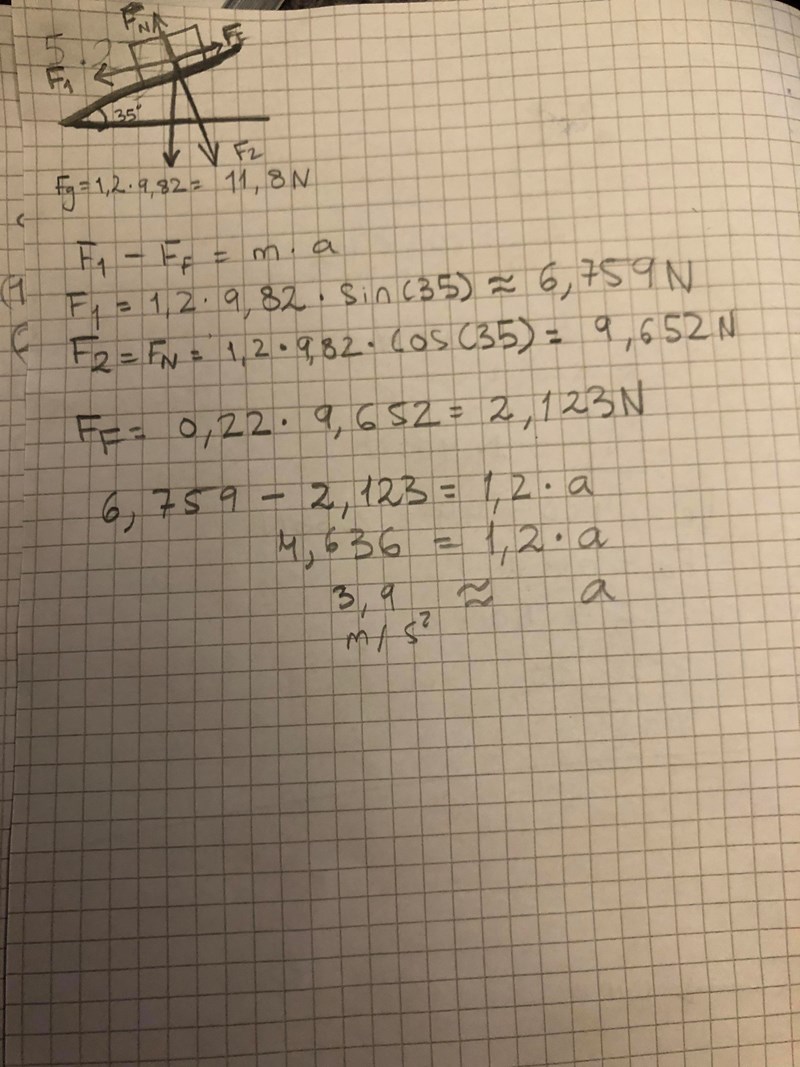 FN
FF
F1
35°
F2
Fg = 1,2 · 9,82 = 11,8 N
F1 - FF = m · a
F1 = 1,2 · 9,82 · sin(35) ≈ 6,759 N
F2 = FN = 1,2 · 9,82 · cos(35) = 9,652 N
FF = 0,22 · 9,652 = 2,123 N
6,759 - 2,123 = 1,2 · a
4,636 = 1,2 · a
3,9 ≈ a
m/s²